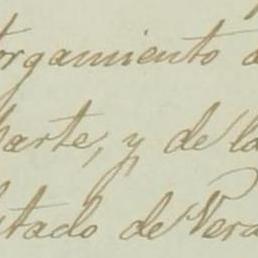 orgamiento d
parte, y de la
stado de Vera